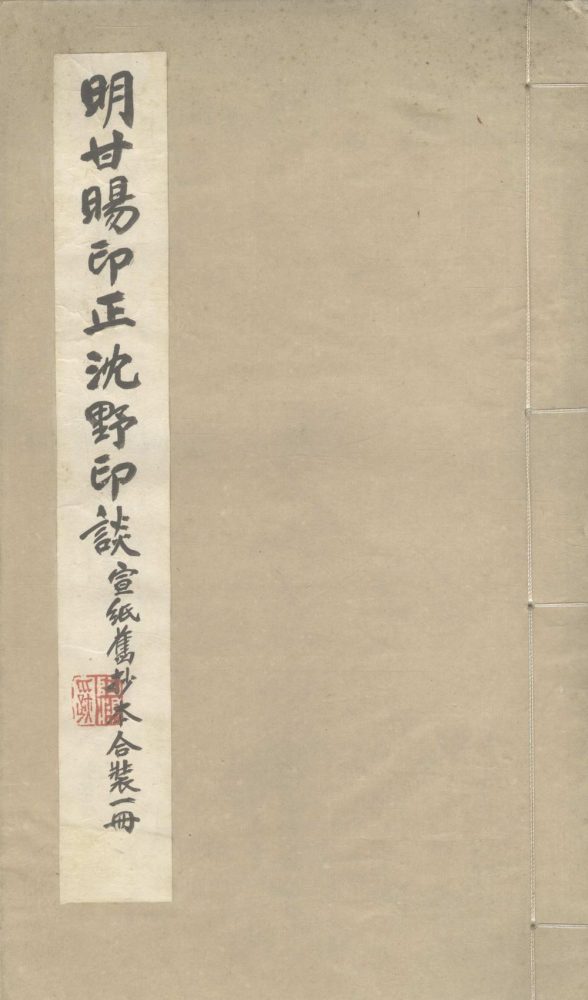 明甘暘印正沈野印談
宣紙舊抄本合裝一冊